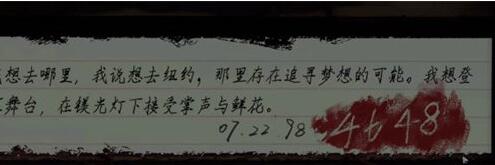 想去哪里，我说想去纽约，那里存在追寻梦想的可能。我想登
舞台，在镁光灯下接受掌声与鲜花。
07.22 98
4648